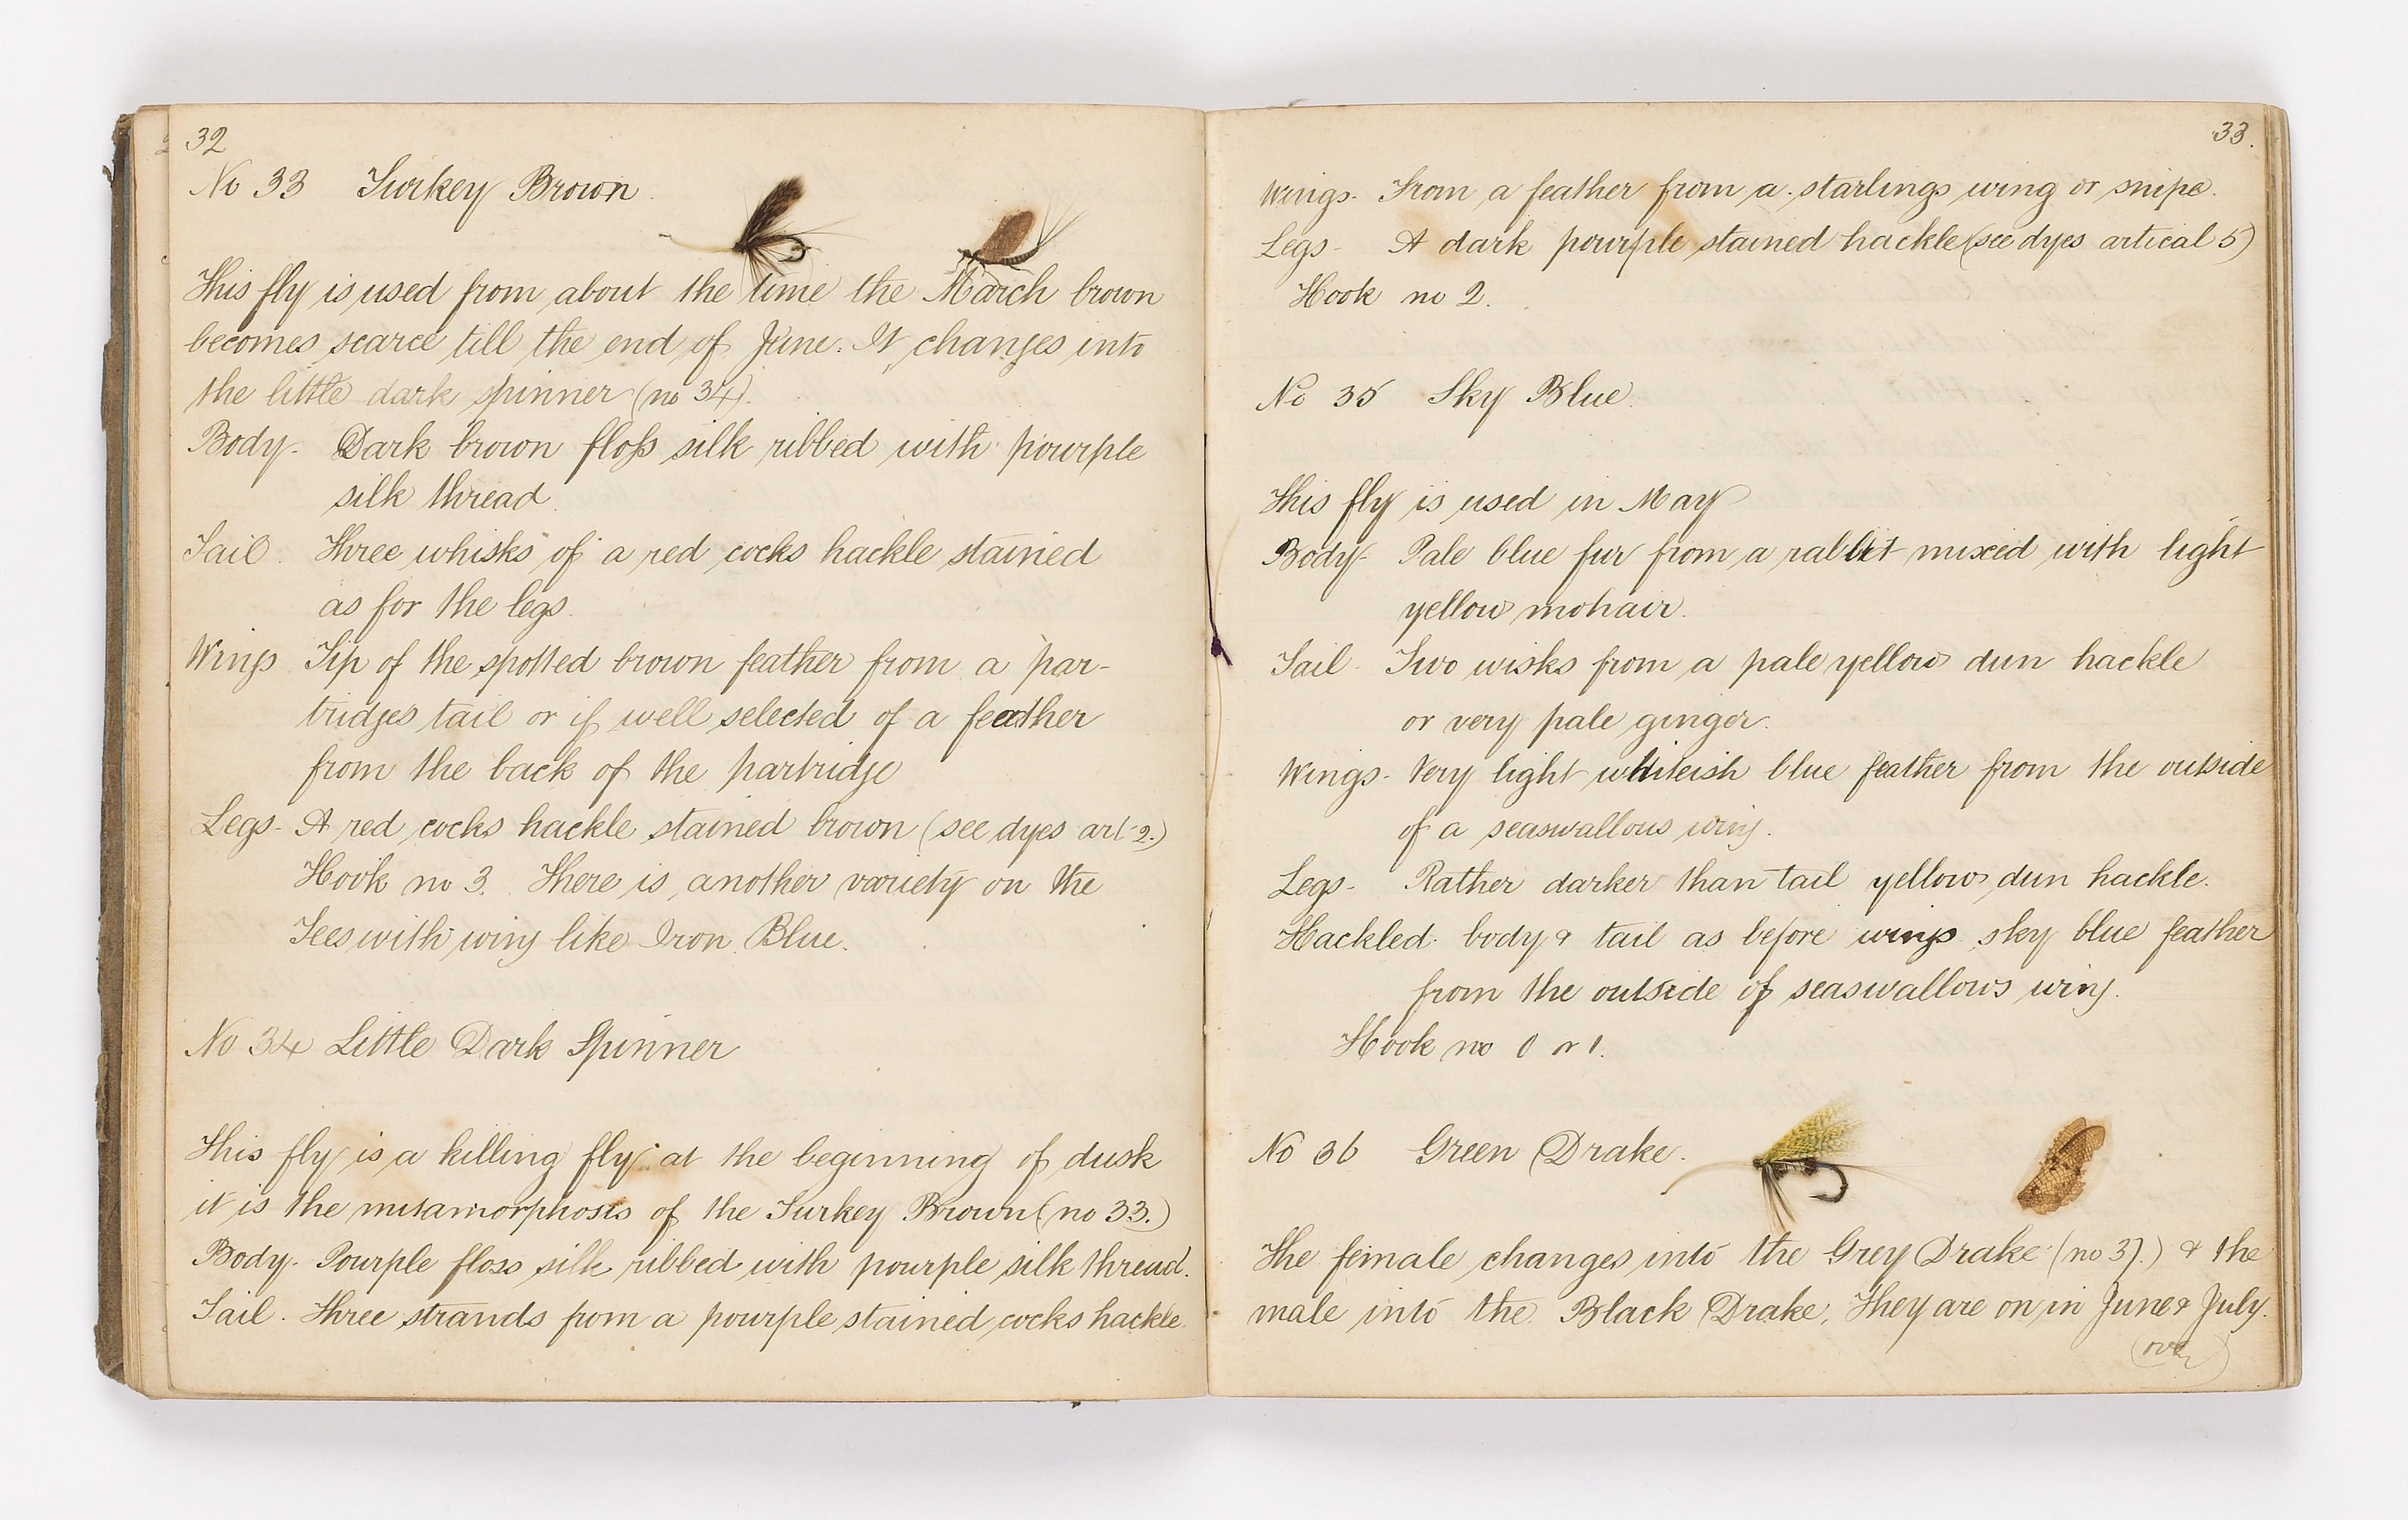 32
No 33 Turkey Brown.
This fly is used from about the time the March brown
becomes scarce till the end of June. It changes into
the little dark spinner (no 34).
Body- Dark brown floſs silk ribbed with pourple
silk thread.
Tail. Three whisks of a red cocks hackle stained
as for the legs.
Wings Tip of the spotted brown feather from a par-
tridges tail or if well selected of a feather
from the back of the partridge
Legs- A red cocks hackle stained brown (see dyes art-2.)
Hook no 3. There is another variety on the
Tees with wing like Iron Blue.
No 34 Little Dark Spinner
This fly is a killing fly at the beginning of dusk
it is the metamorphosis of the Turkey Brown (no 33.)
Body. Pourple floss silk ribbed with pourple silk thread.
Tail. Three strands from a pourple stained cocks hackle.
33.
Wings- From a feather from a starlings wing or snipe.
Legs- A dark pourple stained hackle (see dyes artical 5)
Hook no 2.
No 35 Sky Blue.
This fly is used in May
Body- Pale blue fur from a rabbit mixed with light
yellow mohair.
Tail Two wisks from a pale yellow dun hackle
or very pale ginger.
Wings- Very light whiteish blue feather from the outside
of a seaswallows wing.
Legs- Rather darker than tail yellow dun hackle.
Hackled body & tail as before wings sky blue feather
from the outside of seaswallows wing.
Hook no 0 or 1.
No 36 Green Drake.
The female changes into the Grey Drake (no 37.) & the
male into the Black Drake. They are on in June & July.
(over)